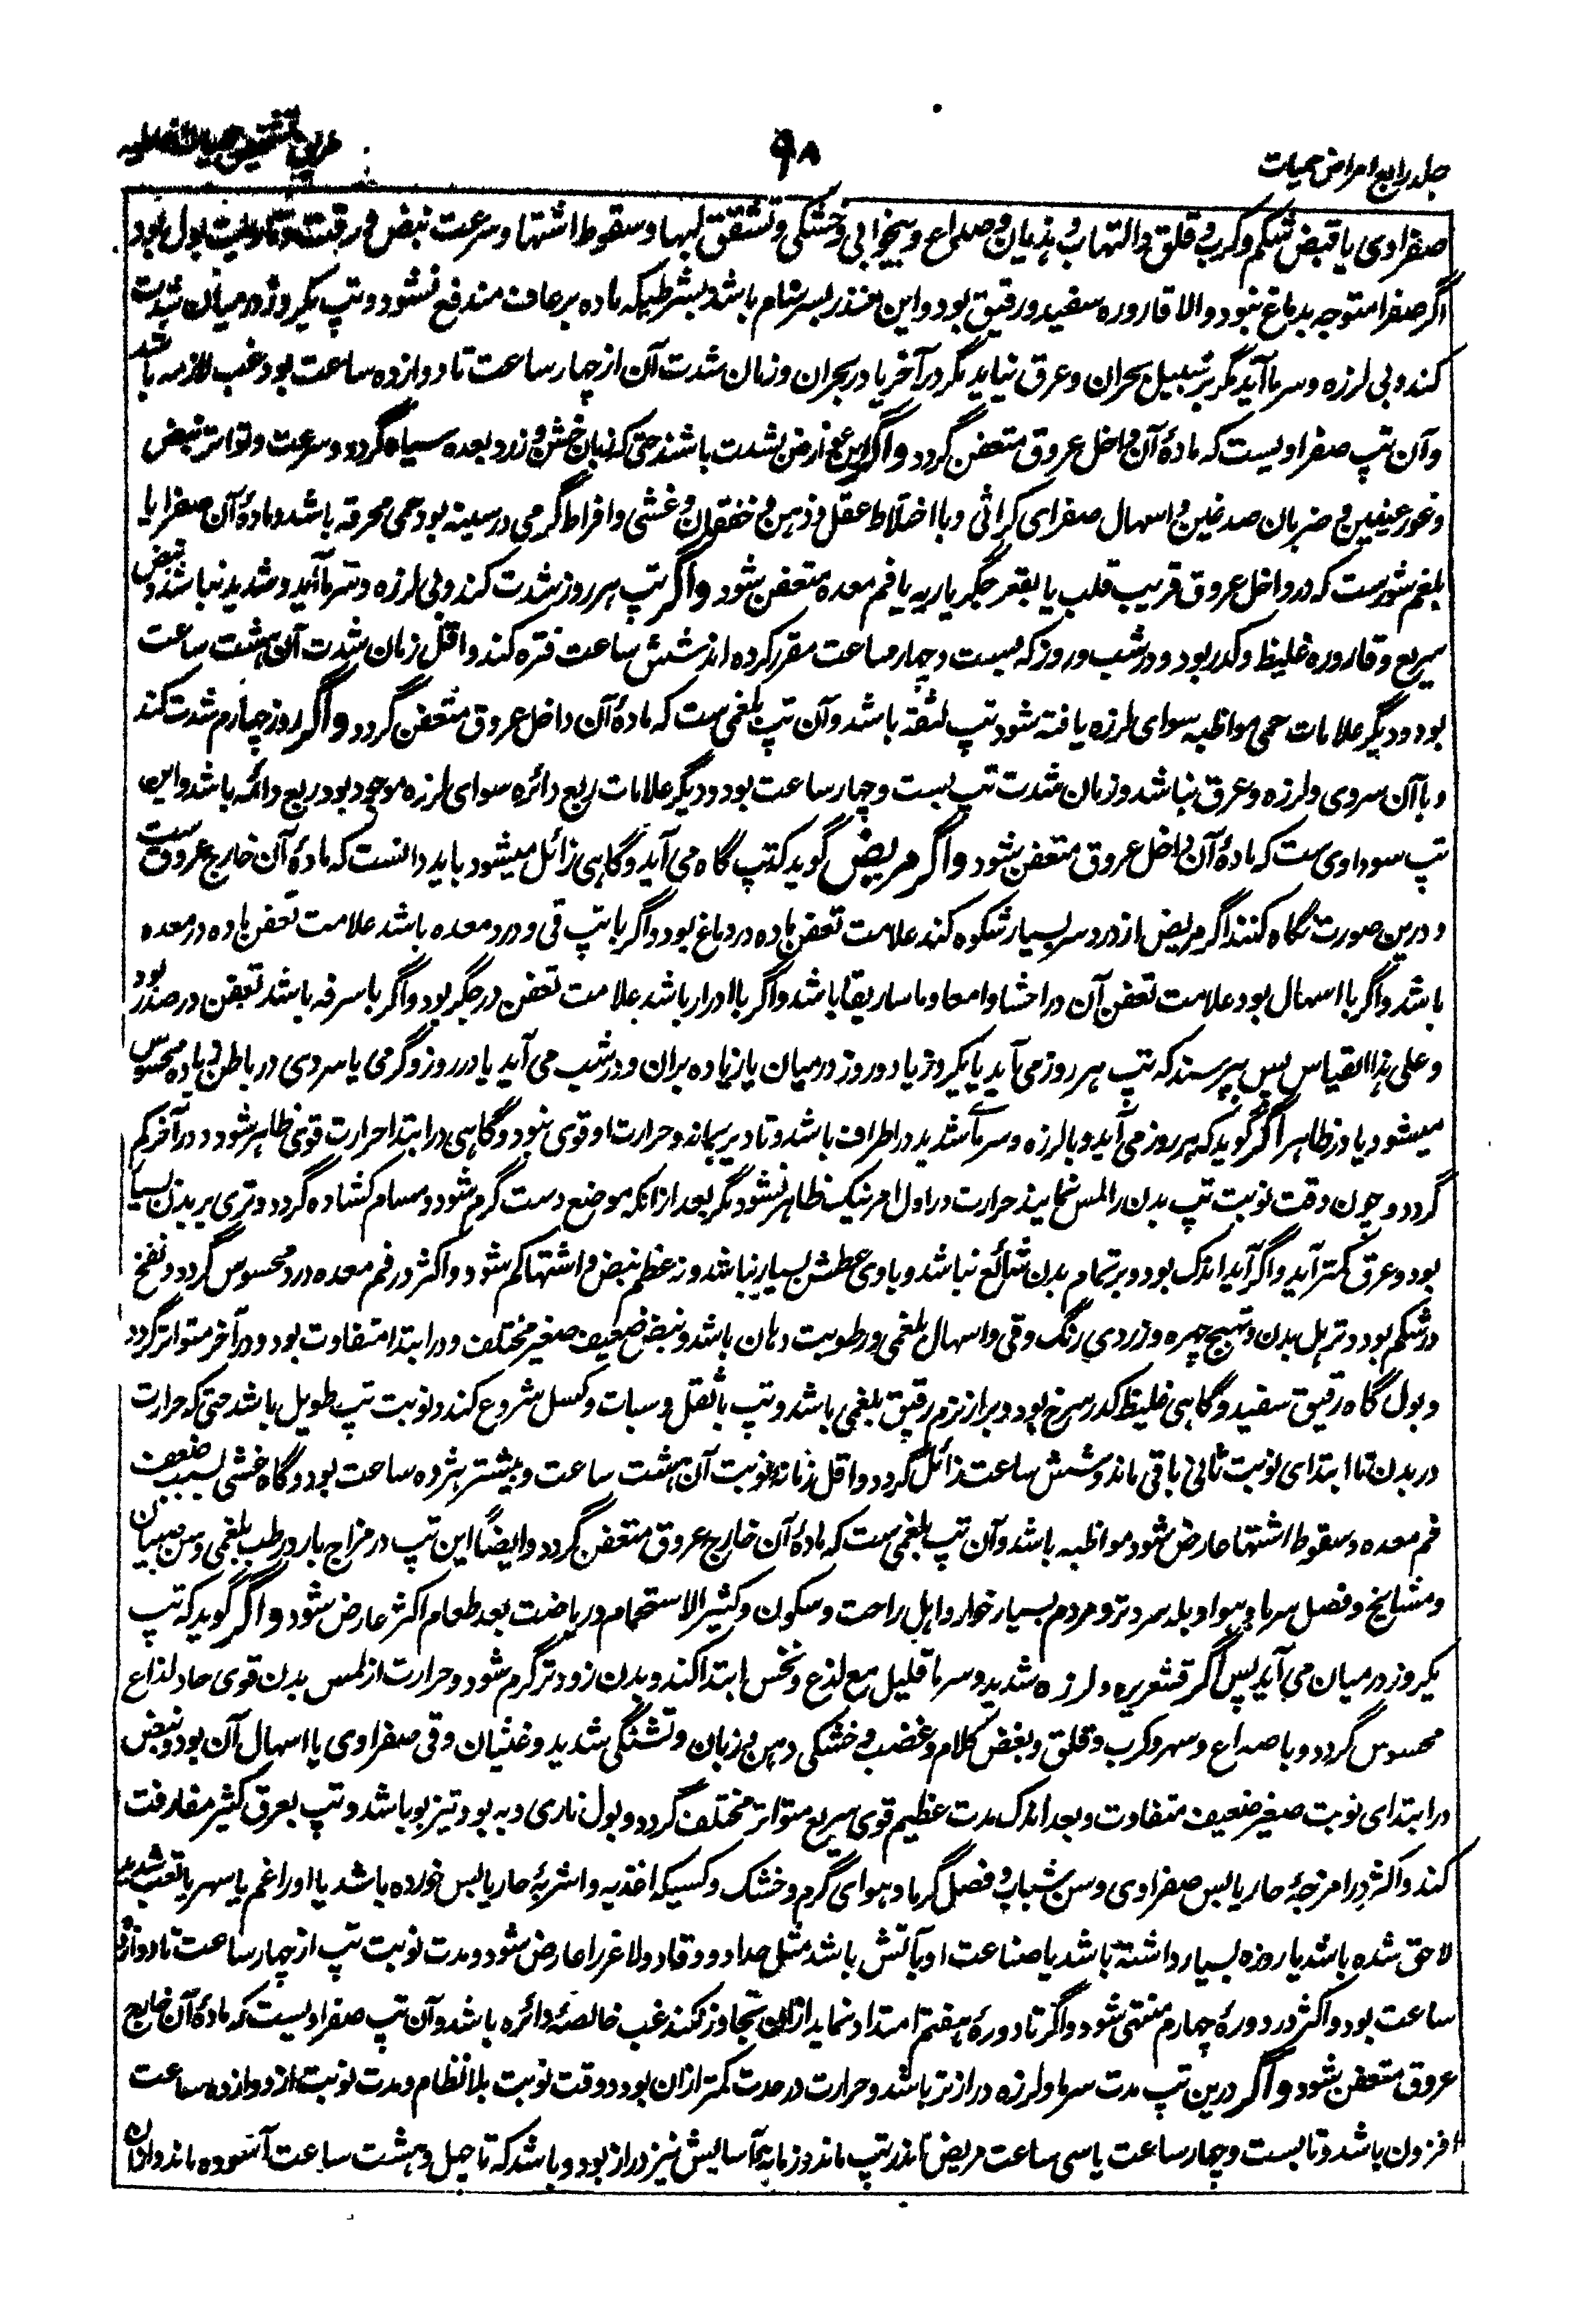 جلد رابع امراض حمیات
۹۸
طریق تشخیص حمیات خلطیه
صفراوی یا قبض شکم و کرب و قلق و التهاب و هذیان و صداع و بیخوابی و خشکی و تشقق لبها و سقوط اشتها و سرعت نبض و رقت و ناریت بول بود
اگر صفرا متوجه بدماغ نبود و الا قاروره سفید و رقیق بود و این منذر بسرسام باشد بشرطیکه ماده برعاف مندفع نشود و تپ یکروز درمیان شدت
کند و بی لرزه و سرما آید مگر بر سبیل بحران و عرق نیاید مگر در آخر یا در بحران و زمان شدت آن از چهار ساعت تا دوازده ساعت بود غب لازمه باشد
و آن تپ صفراویست که مادهٔ آن داخل عروق متعفن گردد و اگر این عوارض بشدت باشند حتی که زبان خشن و زرد و بعده سیاه گردد و سرعت و تواتر نبض
و غور عینین و ضربان صدغین و اسهال صفرای کراثی و با اختلاط عقل و ذهن و خفقان و غشی و افراط گرمی در سینه بود حمی محرقه باشد و مادهٔ آن صفرا یا
بلغم شورست که در داخل عروق قریب قلب یا بقعر جگر یا ریه یا فم معده متعفن شود و اگر تپ هر روز شدت کند و بی لرزه و سرما آید و شدید نباشد و نبض
سریع و قاروره غلیظ و کدر بود و در شب و روز که بیست و چهار ساعت مقرر کرده اند شش ساعت فتره کند و اقل زمان شدت آن هشت ساعت
بود و دیگر علامات حمی مواظبه سوای لرزه یافته شود تپ لثقه باشد و آن تپ بلغمی ست که مادهٔ آن داخل عروق متعفن گردد و اگر روز چهارم شدت کند
و با آن سردی و لرزه و عرق نباشد و زمان شدت تپ بست و چهار ساعت بود و دیگر علامات ربع دائره سوای لرزه موجود بود ربع دائمه باشد و این
تپ سوداوی ست که مادهٔ آن داخل عروق متعفن شود و اگر مریض گوید که تپ گاه می آید و گاهی زائل میشود باید دانست که مادهٔ آن خارج عروق ست
و درین صورت نگاه کنند اگر مریض از درد سر بسیار شکوه کند علامت تعفن ماده در دماغ بود و اگر با تپ قی و درد معده باشد علامت تعفن ماده در معده
باشد و اگر با اسهال بود علامت تعفن آن در احشا و امعا و ماساریقا باشد و اگر با ادرار باشد علامت تعفن در جگر بود و اگر با سرفه باشد تعفن در صدر بود
و علی هذا القیاس پس بپرسند که تپ هر روز می آید یا یکروز یا دو روز درمیان یا زیاده بران و در شب می آید یا در روز و گرمی یا سردی در باطن زیاده محسوس
میشود یا در ظاهر اگر گوید که هر روز می آید و با لرزه و سرمای شدید در اطراف باشد و تا دیر بماند و حرارت او قوی نبود و گاهی در ابتدا حرارت قوی ظاهر شود و در آخر کم
گردد و چون وقت نوبت تپ بدن را لمس نمایند حرارت در اول امر نیک ظاهر نشود مگر بعد از انکه موضع دست گرم شود و مسام کشاده گردد و تری بر بدن بسیار
بود و عرق کمتر آید و اگر آید اندک بود و بر تمام بدن شائع نباشد و با وی عطش بسیار نباشد و نه عظم نبض و اشتها کم شود و اکثر در فم معده درد محسوس گردد و نفخ
در شکم بود و ترهل بدن و تهیج چهره و زردی رنگ و قی و اسهال بلغمی و رطوبت دهان باشد و نبض ضعیف صغیر مختلف و در ابتدا متفاوت بود و در آخر متواتر گردد
و بول گاه رقیق سفید و گاهی غلیظ کدر سرخ بود و براز نرم رقیق بلغمی باشد و تپ با ثقل و سبات و کسل شروع کند و نوبت تپ طویل باشد حتی که حرارت
در بدن تا ابتدای نوبت ثانی باقی ماند و شش ساعت زائل گردد و اقل زمانهٔ نوبت آن هشت ساعت و بیشتر هژده ساعت بود و گاه غشی بسبب ضعف
فم معده و سقوط اشتها عارض شود مواظبه باشد و آن تپ بلغمی ست که مادهٔ آن خارج عروق متعفن گردد و ایضاً این تپ در مزاج بارد رطب بلغمی و سن صبیان
و مشایخ و فصل سرما و هوا و بلد سرد تر و مردم بسیار خوار و اهل راحت و سکون و کثیر الاستحمام و ریاضت بعد طعام اکثر عارض شود و اگر گوید که تپ
یکروز درمیان می آید پس اگر قشعریره و لرزه شدید و سرما قلیل مع لذع و نخس ابتدا کند و بدن زودتر گرم شود و حرارت از لمس بدن قوی حاد لذاع
محسوس گردد و با صداع و سهر و کرب و قلق و بغض کلام و غضب و خشکی دهن و زبان و تشنگی شدید و غثیان و قی صفراوی یا اسهال آن بود و نبض
در ابتدای نوبت صغیر ضعیف متفاوت و بعد اندک مدت عظیم قوی سریع متواتر مختلف گردد و بول ناری و بد بو و تیز بو باشد و تپ بعرق کثیر مفارقت
کند و اکثر در امزجهٔ حار یابس صفراوی و سن شباب و فصل گرما و هوای گرم و خشک و کسیکه اغذیه و اشربهٔ حار یابس خورده باشد یا او را غم یا سهر یا تعب شدید
لاحق شده باشد یا روزه بسیار داشته باشد یا صناعت او بآتش باشد مثل حداد و وقاد و لاغر را عارض شود و مدت نوبت تپ از چهار ساعت تا دوازده
ساعت بود و اکثر در دورهٔ چهارم منتهی شود و اگر تا دورهٔ هفتم امتداد نماید ازان تجاوز نکند غب خالصهٔ دائره باشد و آن تپ صفراویست که مادهٔ آن خارج
عروق متعفن شود و اگر درین تپ مدت سرما و لرزه دراز تر باشد و حرارت در حدت کمتر ازان بود و وقت نوبت بلا نظام و مدت نوبت از دوازده ساعت
افزون باشد و تا بست و چهار ساعت یا سی ساعت مریض اندر تپ ماند و زمانهٔ آسایش نیز دراز بود و باشد که تا چهل و هشت ساعت آسوده ماند و ازان